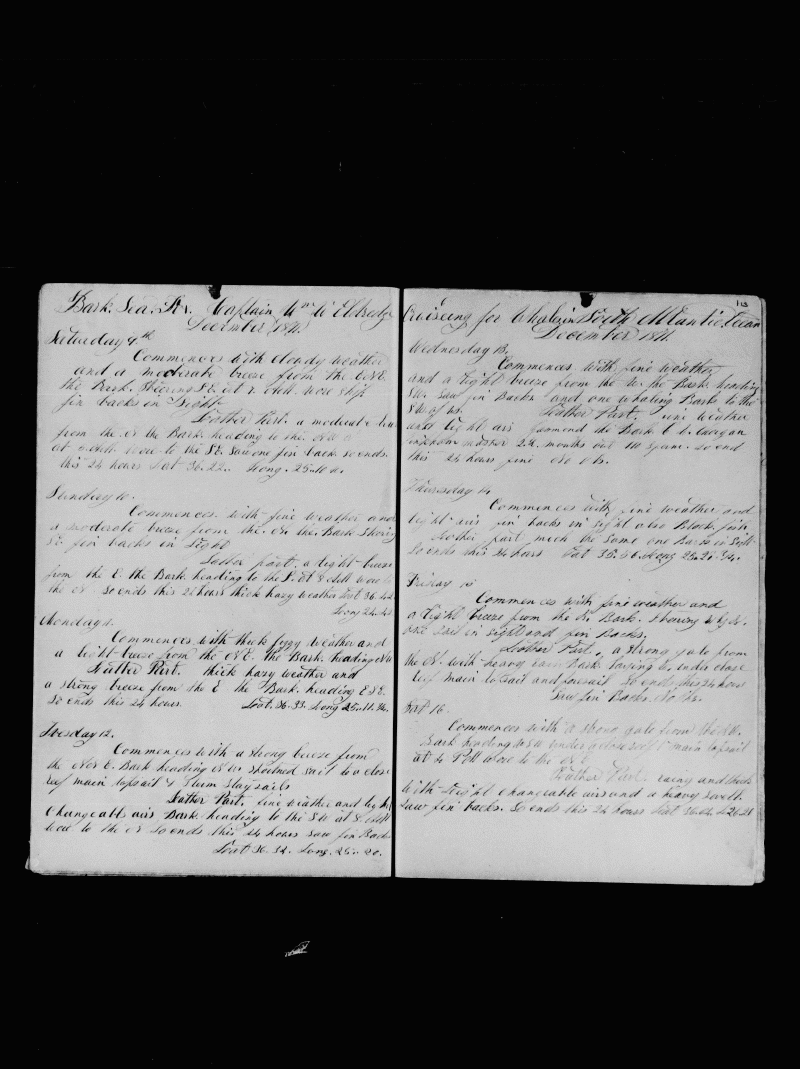 Bark. Sea. Captain Wm W Eldredge
December 1871.
Saturday 9.th
Commences with cloudy weather
and a moderate breeze from the ENE.
the Bark. Steering SE. at wore ship
fin backs in Sight
Latter Part. a moderate
from the N the Bark. heading to the
at wore to the SE. Saw one fin back so ends
this 24 hours Lat 36.22.. Long. 25.10
Sunday 10.
Commences. with fine weather and
a moderate breeze from the the Bark Steering
SE. fin backs in Sight
Latter part, a light breeze
from the E the Bark heading to the S. at 8 wore to
the N So ends this 24 hours thick hazy weather Lat 36.42
Long 24.42
Monday 11.
Commences. with thick foggy weather and
a light breeze from the NE. The Bark heading
Latter Part. thick hazy weather and
a strong breeze from the E the Bark. heading ESE.
So ends this 24 hours. Lat. 36.33. Long 25.11.
Tuesday 12.
Commences with a strong breeze from
the N E. Bark heading shortned sail to a close
reef main topsail & Staysails
Latter Part. fine weather and light
Changeable airs Bark heading to the SW at 8
wore to the N So ends this 24 hours saw fin Back
Lat 36.32. Long. 25..20.
113
Cruiseing for Whales in South Atlantic Ocean
December 1871.
Wednesday 13.
Commences with fine weather,
and a light breeze from the the Bark heading
SW. Saw fin Backs and one whaling Bark to the
SW of us. Latter Part, fine weather
and light airs the Bark C. W. Morgan
unknown master 24. months out spm. So end
this 24 hours fine No Obs.
Thursday 14
Commences with fine weather and
light airs fin backs in sight also Black fish
Latter part much the same one Bark in Sight
So ends this 24 hours Lat 35.56. Long 25.21
Friday 15
Commences with fine weather and
a light breeze from the Bark. Steering W by S.
one sail in sight and fin Backs.
Latter Part., a strong gale from
the N. with heavy Bark laying to, under close
reef main topsail and foresail So ends this 24 hours
Saw fin Backs. No Obs.
Sat 16.
Commences with a strong gale from the NW.
Bark heading under a close reef main topsail
at 4 wore to the N E
Latter Part. rainy and thick
With Light Changeable airs and a heavy swell.
Saw fin backs. So ends this 24 hours Lat 36.